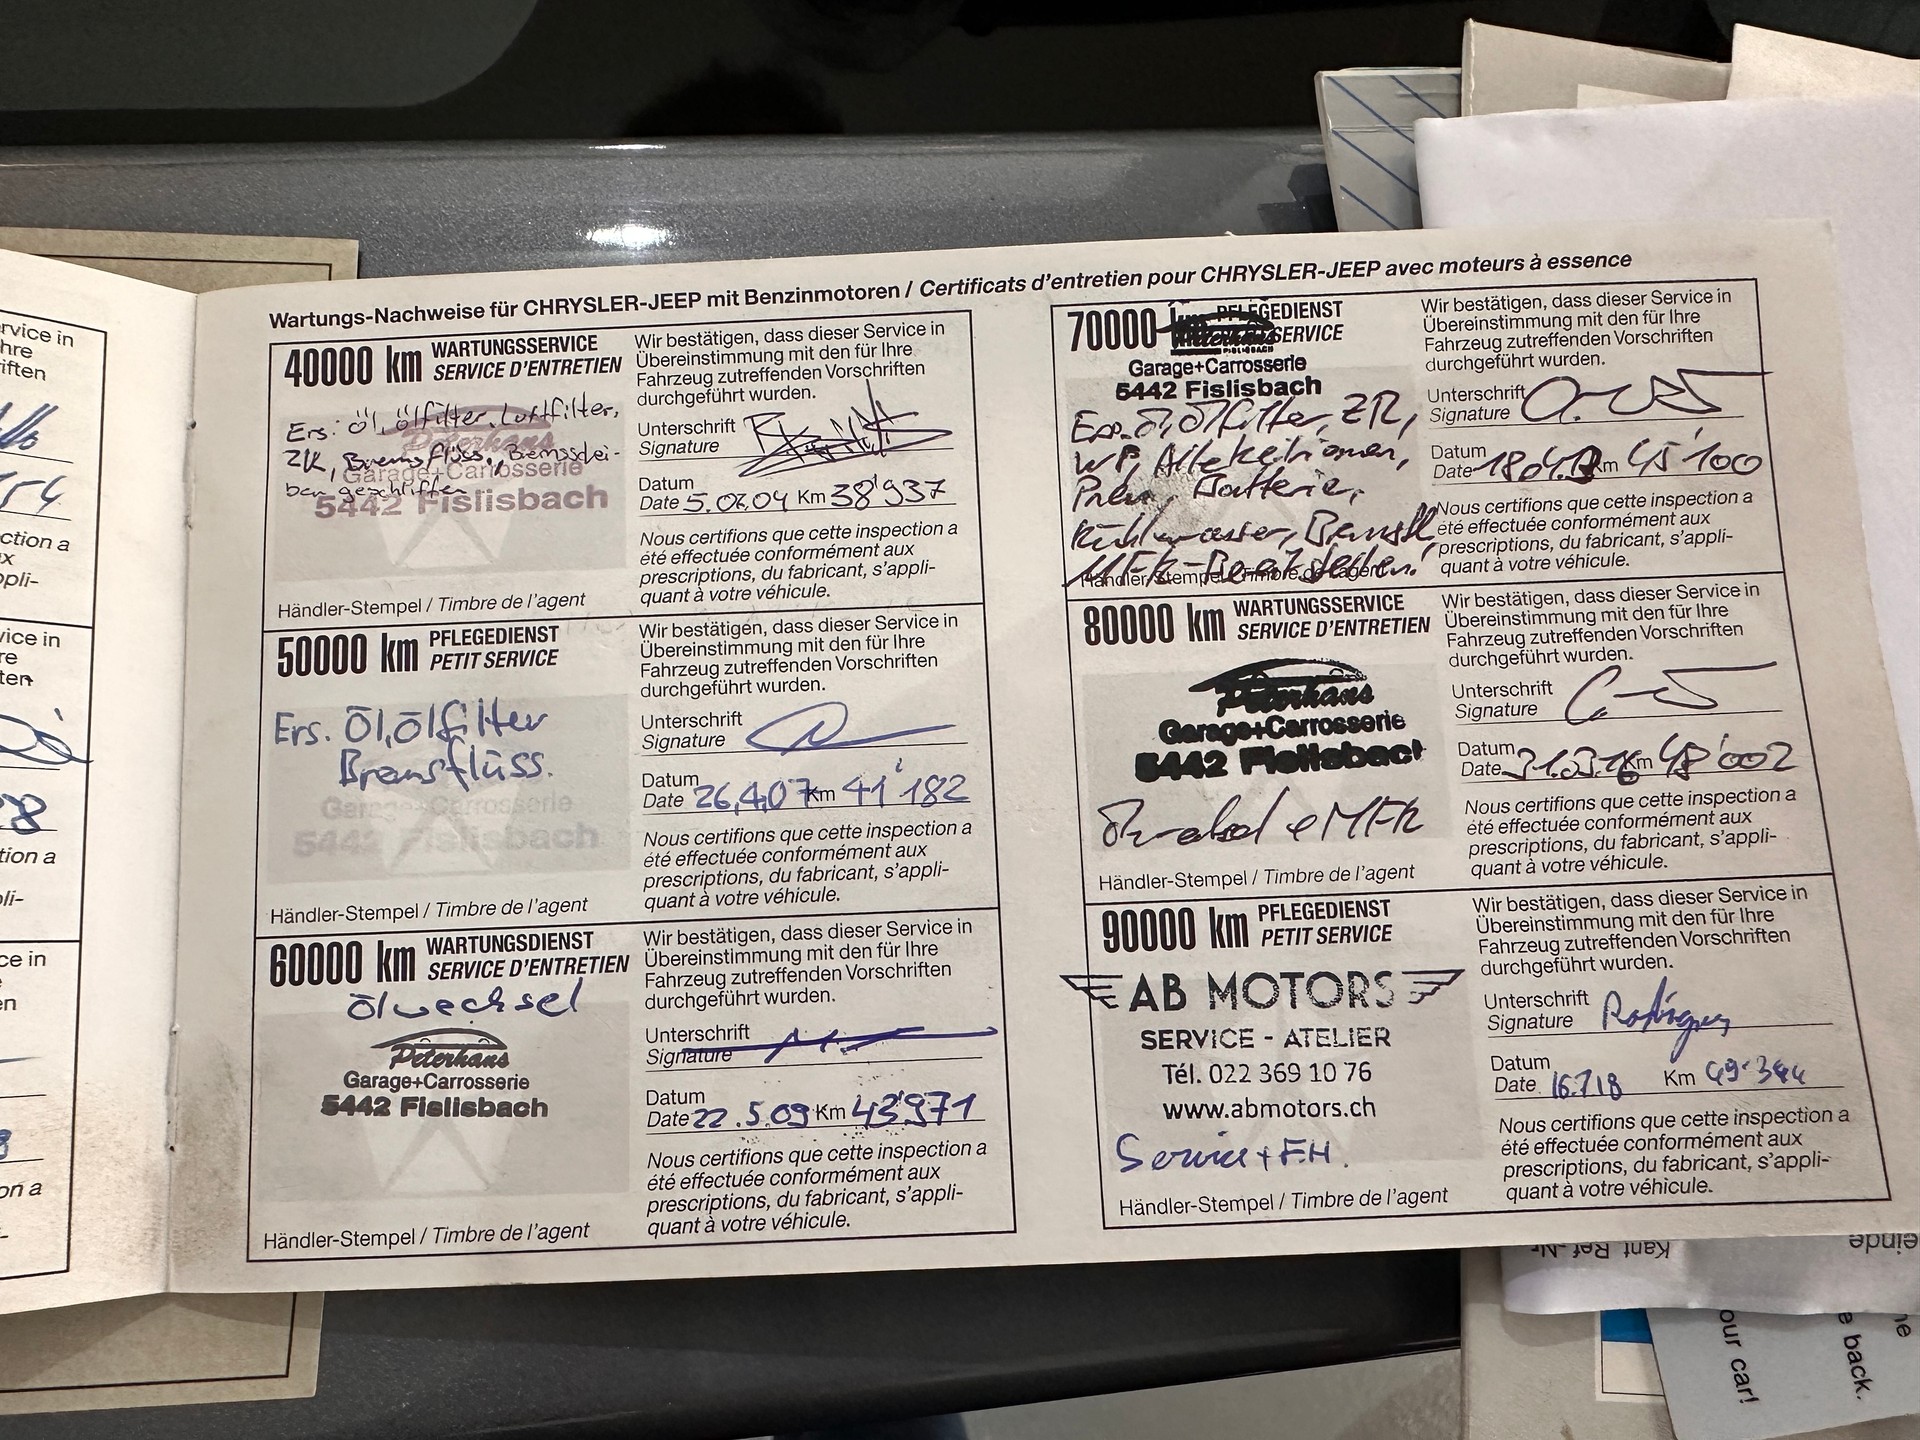 Wartungs-Nachweise für CHRYSLER-JEEP mit Benzinmotoren / Certificats d'entretien pour CHRYSLER-JEEP avec moteurs à essence
40000 km WARTUNGSSERVICE
SERVICE D'ENTRETIEN
Ers: Öl, Ölfilter, Luftfilter,
ZK, Bremsflüss., Bremsschei-
ben geschliffen
Peterhans
Garage+Carrosserie
5442 Fislisbach
Händler-Stempel / Timbre de l'agent
Wir bestätigen, dass dieser Service in
Übereinstimmung mit den für Ihre
Fahrzeug zutreffenden Vorschriften
durchgeführt wurden.
Unterschrift
Signature
Datum
Date Km 38'937
Nous certifions que cette inspection a
été effectuée conformément aux
prescriptions, du fabricant, s'appli-
quant à votre véhicule.
50000 km PFLEGEDIENST
PETIT SERVICE
Ers. Öl, Ölfilter
Bremsflüss.
Garage+Carrosserie
5442 Fislisbach
Händler-Stempel / Timbre de l'agent
Wir bestätigen, dass dieser Service in
Übereinstimmung mit den für Ihre
Fahrzeug zutreffenden Vorschriften
durchgeführt wurden.
Unterschrift
Signature
Datum
Date 26,4,07 Km 41'182
Nous certifions que cette inspection a
été effectuée conformément aux
prescriptions, du fabricant, s'appli-
quant à votre véhicule.
60000 km WARTUNGSDIENST
SERVICE D'ENTRETIEN
Ölwechsel
Peterhans
Garage+Carrosserie
5442 Fislisbach
Händler-Stempel / Timbre de l'agent
Wir bestätigen, dass dieser Service in
Übereinstimmung mit den für Ihre
Fahrzeug zutreffenden Vorschriften
durchgeführt wurden.
Unterschrift
Signature
Datum
Date 22.5.09 Km 43'971
Nous certifions que cette inspection a
été effectuée conformément aux
prescriptions, du fabricant, s'appli-
quant à votre véhicule.
70000 km PFLEGEDIENST
SERVICE
Garage+Carrosserie
5442 Fislisbach
Ers. Öl, Ölfilter, ZR,
WP,
Batterie,
Kühlwasser,
Händler-Stempel / Timbre de l'agent
Wir bestätigen, dass dieser Service in
Übereinstimmung mit den für Ihre
Fahrzeug zutreffenden Vorschriften
durchgeführt wurden.
Unterschrift
Signature
Datum
Date Km 45'100
Nous certifions que cette inspection a
été effectuée conformément aux
prescriptions, du fabricant, s'appli-
quant à votre véhicule.
80000 km WARTUNGSSERVICE
SERVICE D'ENTRETIEN
Peterhans
Garage+Carrosserie
5442 Fislisbach
MFK
Händler-Stempel / Timbre de l'agent
Wir bestätigen, dass dieser Service in
Übereinstimmung mit den für Ihre
Fahrzeug zutreffenden Vorschriften
durchgeführt wurden.
Unterschrift
Signature
Datum
Date 31.03.16 Km 48'002
Nous certifions que cette inspection a
été effectuée conformément aux
prescriptions, du fabricant, s'appli-
quant à votre véhicule.
90000 km PFLEGEDIENST
PETIT SERVICE
AB MOTORS
SERVICE - ATELIER
Tél. 022 369 10 76
www.abmotors.ch
Service + F.H.
Händler-Stempel / Timbre de l'agent
Wir bestätigen, dass dieser Service in
Übereinstimmung mit den für Ihre
Fahrzeug zutreffenden Vorschriften
durchgeführt wurden.
Unterschrift
Signature
Datum
Date 16.7.18 Km 49.344
Nous certifions que cette inspection a
été effectuée conformément aux
prescriptions, du fabricant, s'appli-
quant à votre véhicule.
Kant Ref-Nr
our car!
e back.